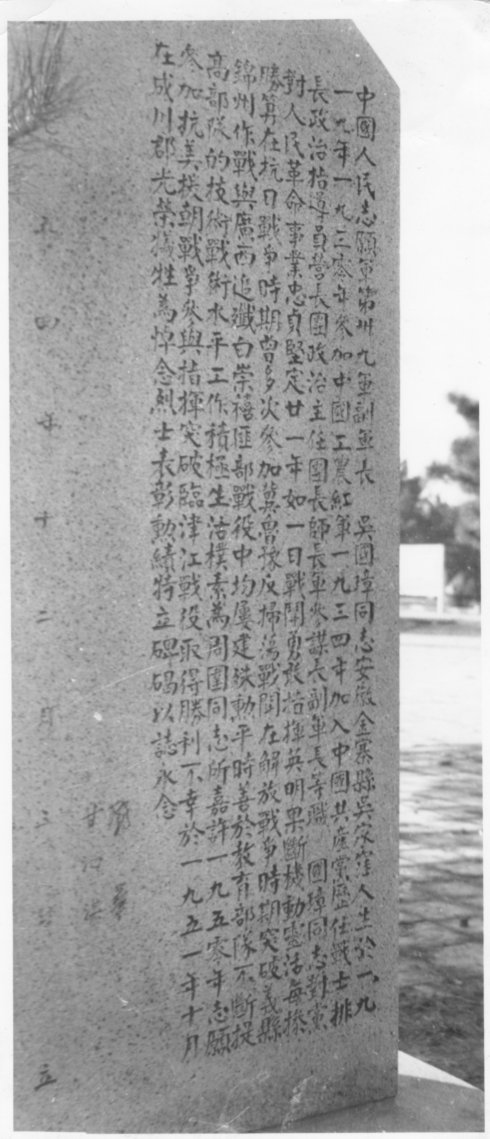 中國人民志願軍第卅九軍副軍長　吳國璋同志安徽金寨縣吳家店人生於一九
一九年一九三零年參加中國工農紅軍一九三四年加入中國共產黨歷任戰士排
長政治指導員營長團政治主任團長師長軍參謀長副軍長等職　國璋同志對黨
對人民革命事業忠貞堅定廿一年如一日戰鬥勇敢指揮英明果斷機動靈活每操
勝算在抗日戰爭時期曾多次參加冀魯豫反掃蕩戰鬥在解放戰爭時期突破義縣
錦州作戰與廣西追殲白崇禧匪部戰役中均屢建殊勳平時善於教育部隊不斷提
高部隊的技術戰術水平工作積極生活樸素為周圍同志所嘉許一九五零年志願
參加抗美援朝戰爭參與指揮突破臨津江戰役取得勝利不幸於一九五一年十月
在成川郡光榮犧牲為悼念烈士表彰勳績特立碑碣以誌永念
年十二月三 立